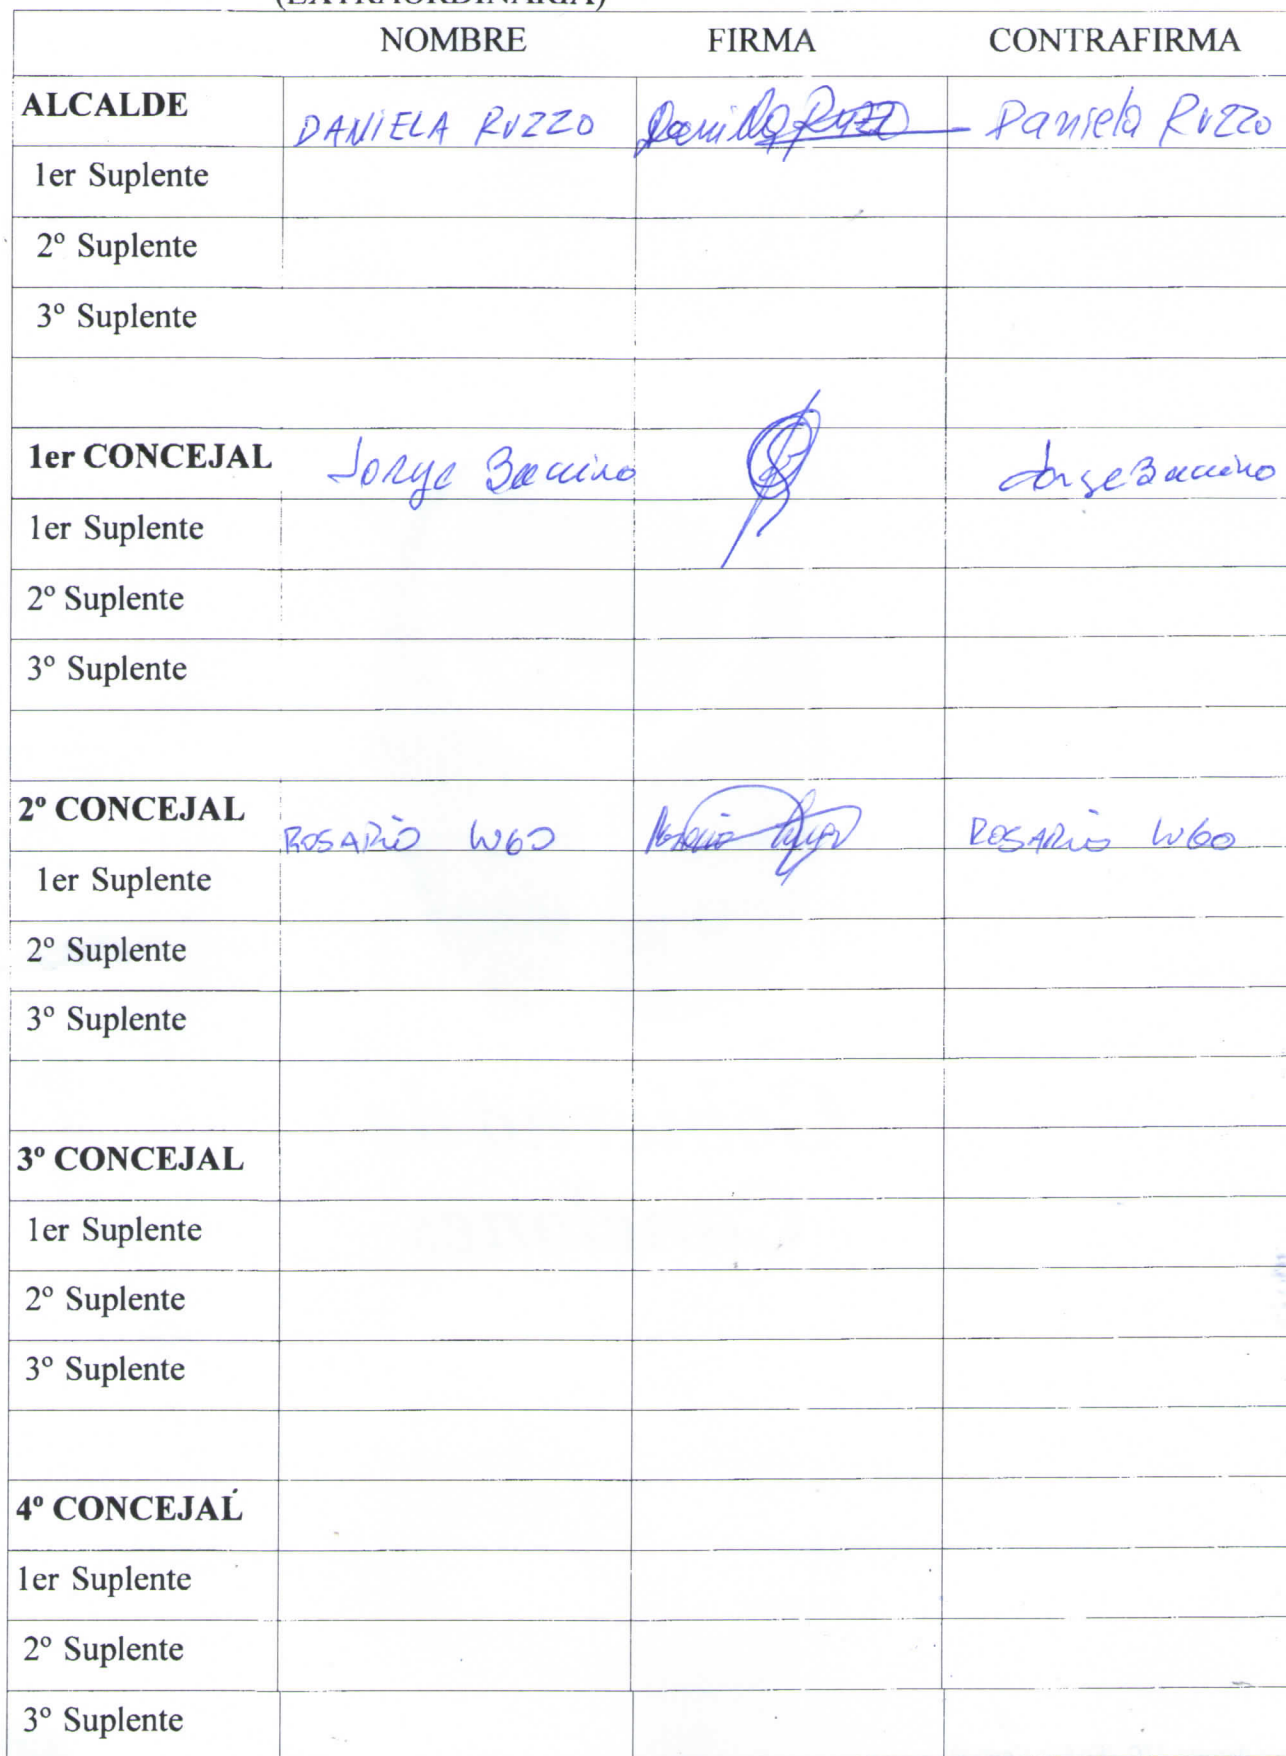 (EXTRAORDINARIA)
NOMBRE FIRMA CONTRAFIRMA
ALCALDE DANIELA RUZZO Daniela Ruzzo Daniela Ruzzo
1er Suplente
2º Suplente
3º Suplente
1er CONCEJAL Jorge Baccino Jorge Baccino
1er Suplente
2º Suplente
3º Suplente
2º CONCEJAL ROSARIO LUGO Rosario Lugo ROSARIO LUGO
1er Suplente
2º Suplente
3º Suplente
3º CONCEJAL
1er Suplente
2º Suplente
3º Suplente
4º CONCEJAL
1er Suplente
2º Suplente
3º Suplente